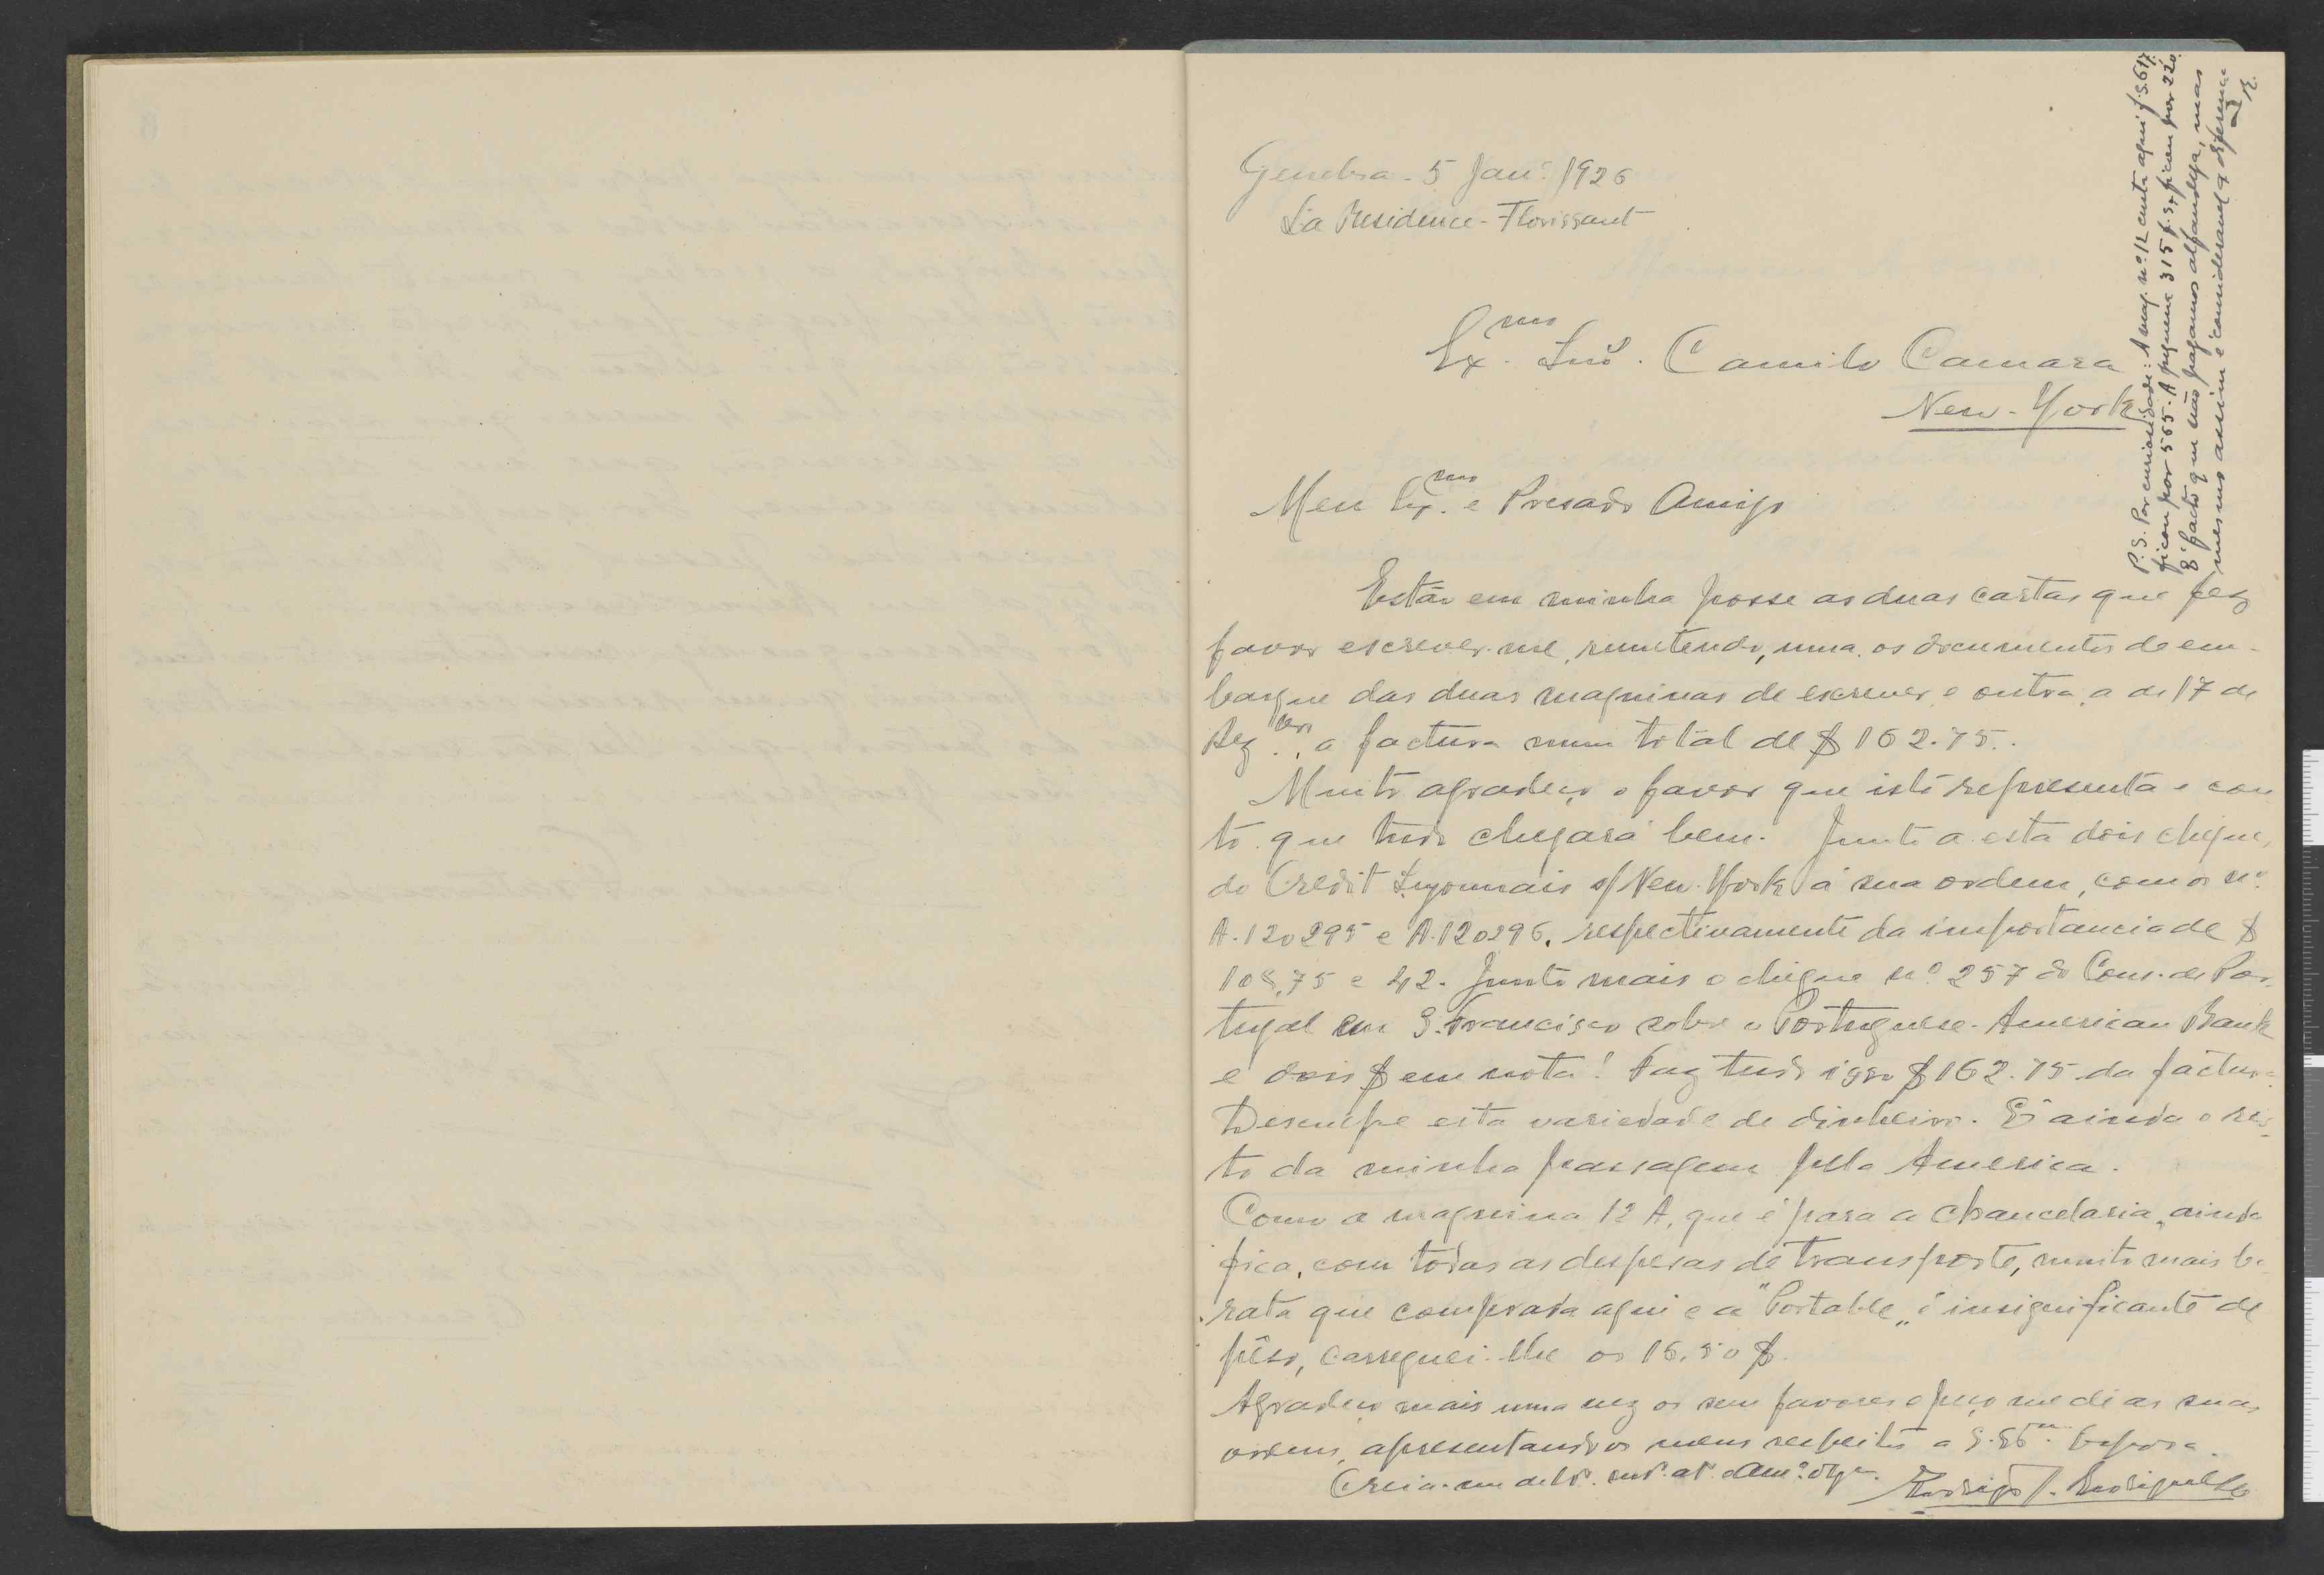 Genebra - 5 Janº. 1926
La Residence - Florissant
Exmo. Snr. Camilo Camara
New-York
Meu Exmo. e Presado Amigo
Estão em minha posse as duas cartas que fez
favor escrever-me, remetendo, uma, os documentos de em-
barque das duas maquinas de escrever e outra, a de 17 de
Dezbro., a factura num total de $ 162.75.
Muito agradeço o favor que isto representa e con
to que tudo chegará bem. Junto a esta dois cheques
do Credit Lyonnais s/ New-York á sua ordem, com os nº.
A.120295 e A.120296, respectivamente da importancia de $
108,75 e 42. Junto mais o cheque nº 257 do Cons. de Por-
tugal em S. Francisco sobre o Portuguese-American Bank
e dois $ em nota! Faz tudo isso $162.75 da factura.
Desculpe esta variedade de dinheiro. É ainda o res-
to da minha passagem pela America.
Como a maquina 12 A, que é para a Chancelaria, ainda
fica, com todas as despesas de transporte, muito mais ba-
rata que comprada aqui e a "Portable" é insignificante de
pêso, carreguei-lhe os 16.50 $.
Agradeço mais uma vez os seus favores e peço me dê as suas
ordens, apresentando os meus respeitos a S. Exma. Esposa.
Creia-me de Vª. mtº. atº. e Amº. obgº.
Rodrigo J. Rodrigues
P.S. Por curiosidade: A maq. nº. 12 custa aqui f.s. 617
ficou por 565. A pequena 315 f.s., ficou por 220.
É facto que não pagamos alfandega, mas
mesmo assim é consideravel a diferença
R.